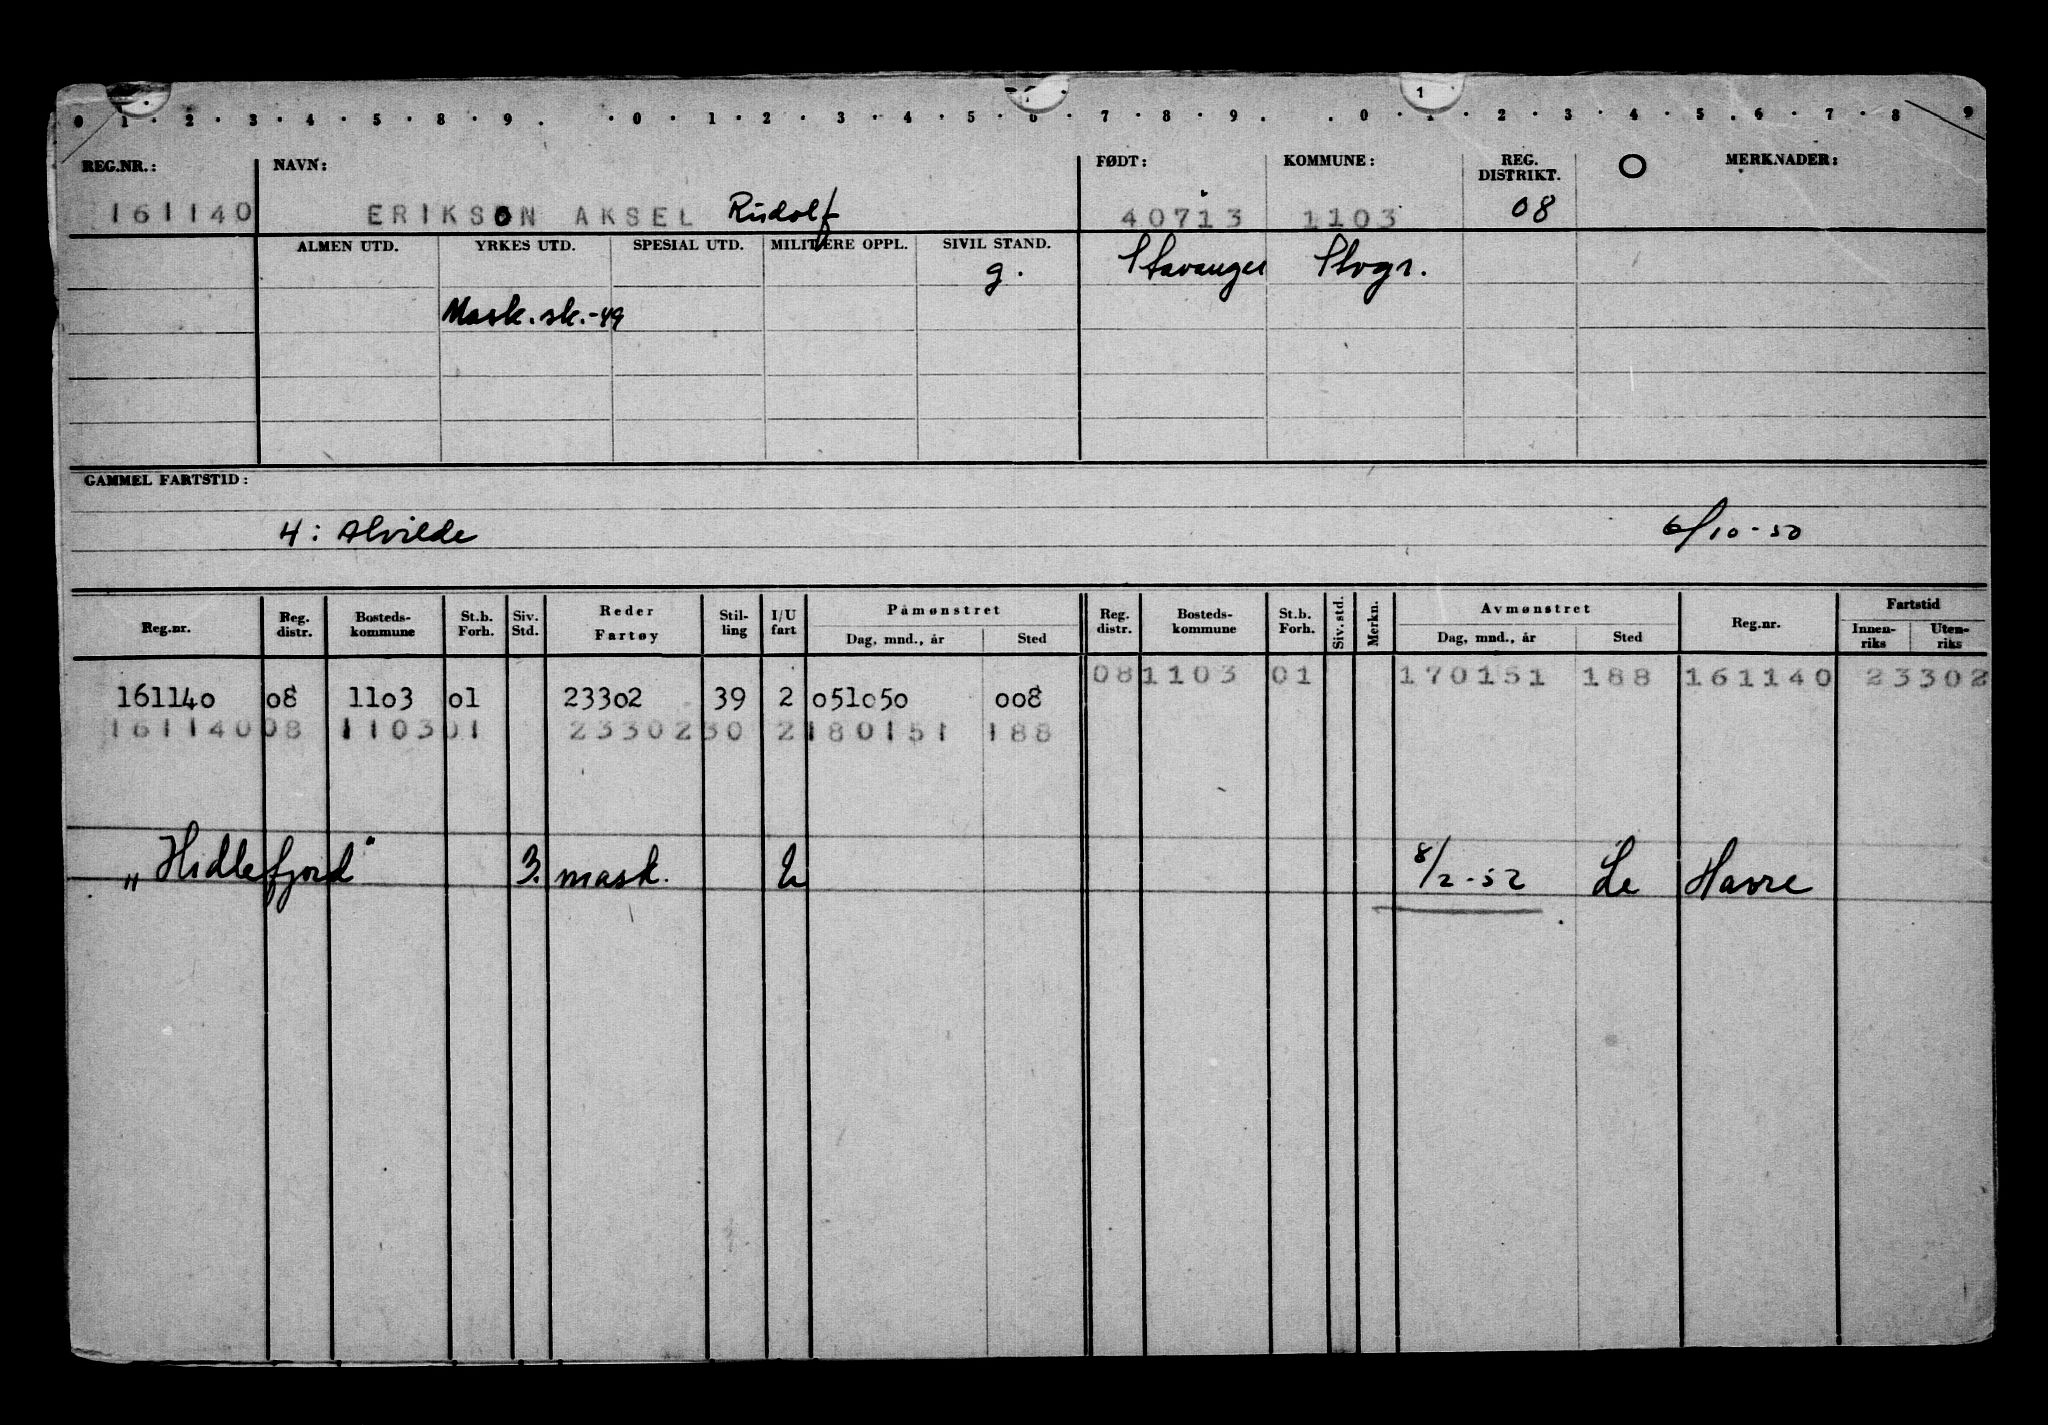 0 1 · 2 · 3 · 4 · 5 · 8 · 9 . · 0 · 1 · 2 · 3 · 4 · 5 · 6 · 7 · 8 · 9 . . 0 · 1 · 2 · 3 · 4 · 5 . 6 · 7 · 8 9
1
REG.NR.: NAVN: FØDT: KOMMUNE: REG. DISTRIKT. O MERKNADER:
161140 ERIKSON AKSEL Rudolf 40713 1103 08
ALMEN UTD. YRKES UTD. SPESIAL UTD. MILITÆRE OPPL. SIVIL STAND.
g. Stavanger Stvgr.
Mask. sk. -49
GAMMEL FARTSTID:
4: Alvilde 6/10-50
Reg.nr. Reg. distr. Bosteds- kommune St.b. Forh. Siv. Std. Reder Fartøy Stil- ling I/U fart Påmønstret Dag, mnd., år Sted Reg. distr. Bosteds- kommune St.b. Forh. Siv. std. Merkn. Avmønstret Dag, mnd., år Sted Reg.nr. Fartstid Innen- riks Uten- riks
08 1103 01 170151 188 161140 23302
161140 08 1103 01 23302 39 2 051050 008
161140 08 1103 01 23302 30 2 180151 188
„Hidlefjord" 3. mask. U 8/2-52 Le Havre